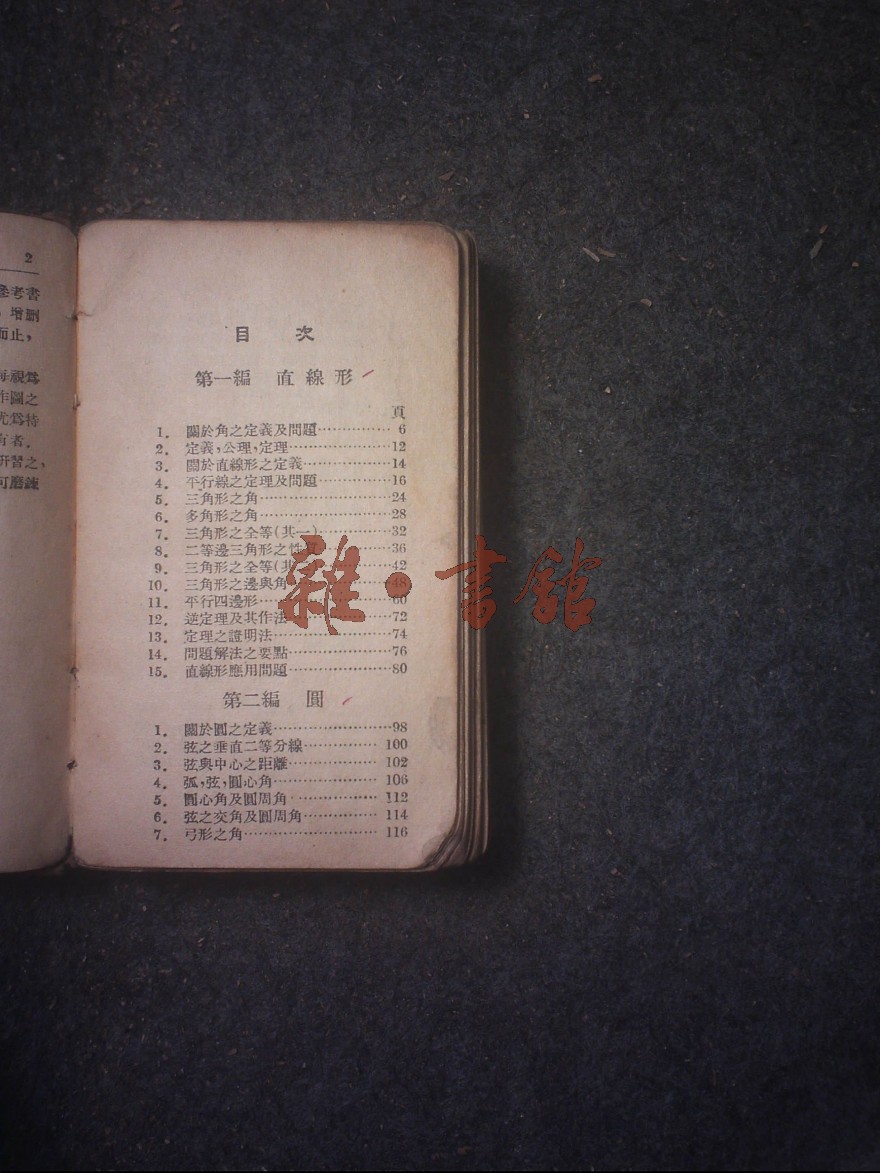 2
參考書
增刪
而止，
每視爲
作圖之
尤爲特
有者．
研習之，
可磨鍊
目 次
第一編 直線形
頁
1． 關於角之定義及問題 6
2． 定義，公理，定理 12
3． 關於直線形之定義 14
4． 平行線之定理及問題 16
5． 三角形之角 24
6． 多角形之角 28
7． 三角形之全等（其一） 32
8． 二等邊三角形之性質 36
9． 三角形之全等（其 42
10． 三角形之邊與角 48
11． 平行四邊形 60
12． 逆定理及其作法 72
13． 定理之證明法 74
14． 問題解法之要點 76
15． 直線形應用問題 80
第二編 圓
1． 關於圓之定義 98
2． 弦之垂直二等分線 100
3． 弦與中心之距離 102
4． 弧，弦，圓心角 106
5． 圓心角及圓周角 112
6． 弦之交角及圓周角 114
7． 弓形之角 116
雜·書館